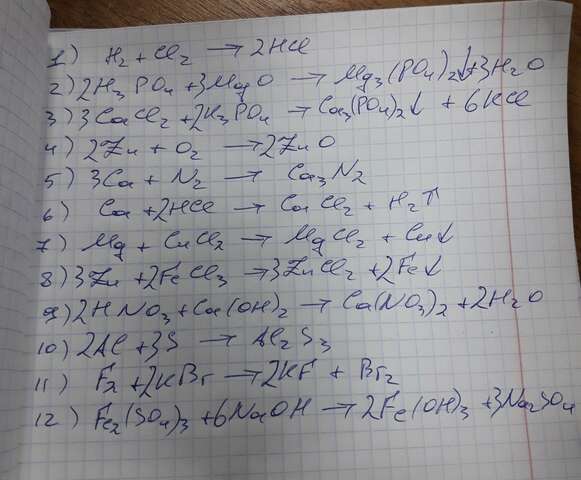 1) H₂ + Cl₂ → 2HCl
2) 2H₃PO₄ + 3MgO → Mg₃(PO₄)₂↓ + 3H₂O
3) 3CaCl₂ + 2K₃PO₄ → Ca₃(PO₄)₂↓ + 6KCl
4) 2Zn + O₂ → 2ZnO
5) 3Ca + N₂ → Ca₃N₂
6) Ca + 2HCl → CaCl₂ + H₂↑
7) Mg + CuCl₂ → MgCl₂ + Cu↓
8) 3Zn + 2FeCl₃ → 3ZnCl₂ + 2Fe↓
9) 2HNO₃ + Ca(OH)₂ → Ca(NO₃)₂ + 2H₂O
10) 2Al + 3S → Al₂S₃
11) F₂ + 2KBr → 2KF + Br₂
12) Fe₂(SO₄)₃ + 6NaOH → 2Fe(OH)₃ + 3Na₂SO₄